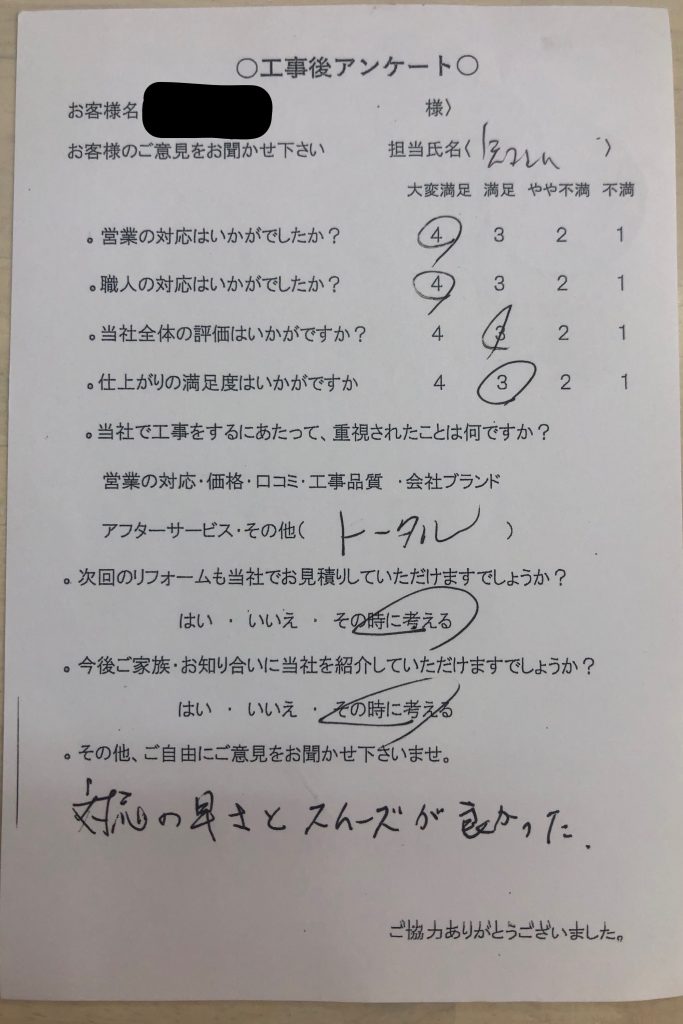 〇工事後アンケート〇
お客様名 様〉
お客様のご意見をお聞かせ下さい 担当氏名〈 〉
大変満足 満足 やや不満 不満
。営業の対応はいかがでしたか？ 4 3 2 1
。職人の対応はいかがでしたか？ 4 3 2 1
。当社全体の評価はいかがですか？ 4 3 2 1
。仕上がりの満足度はいかがですか 4 3 2 1
。当社で工事をするにあたって、重視されたことは何ですか？
営業の対応・価格・口コミ・工事品質 ・会社ブランド
アフターサービス・その他( トータル )
。次回のリフォームも当社でお見積りしていただけますでしょうか？
はい ・ いいえ ・ その時に考える
。今後ご家族・お知り合いに当社を紹介していただけますでしょうか？
はい ・ いいえ ・ その時に考える
。その他、ご自由にご意見をお聞かせ下さいませ。
対応の早さとスムーズが良かった.
ご協力ありがとうございました。